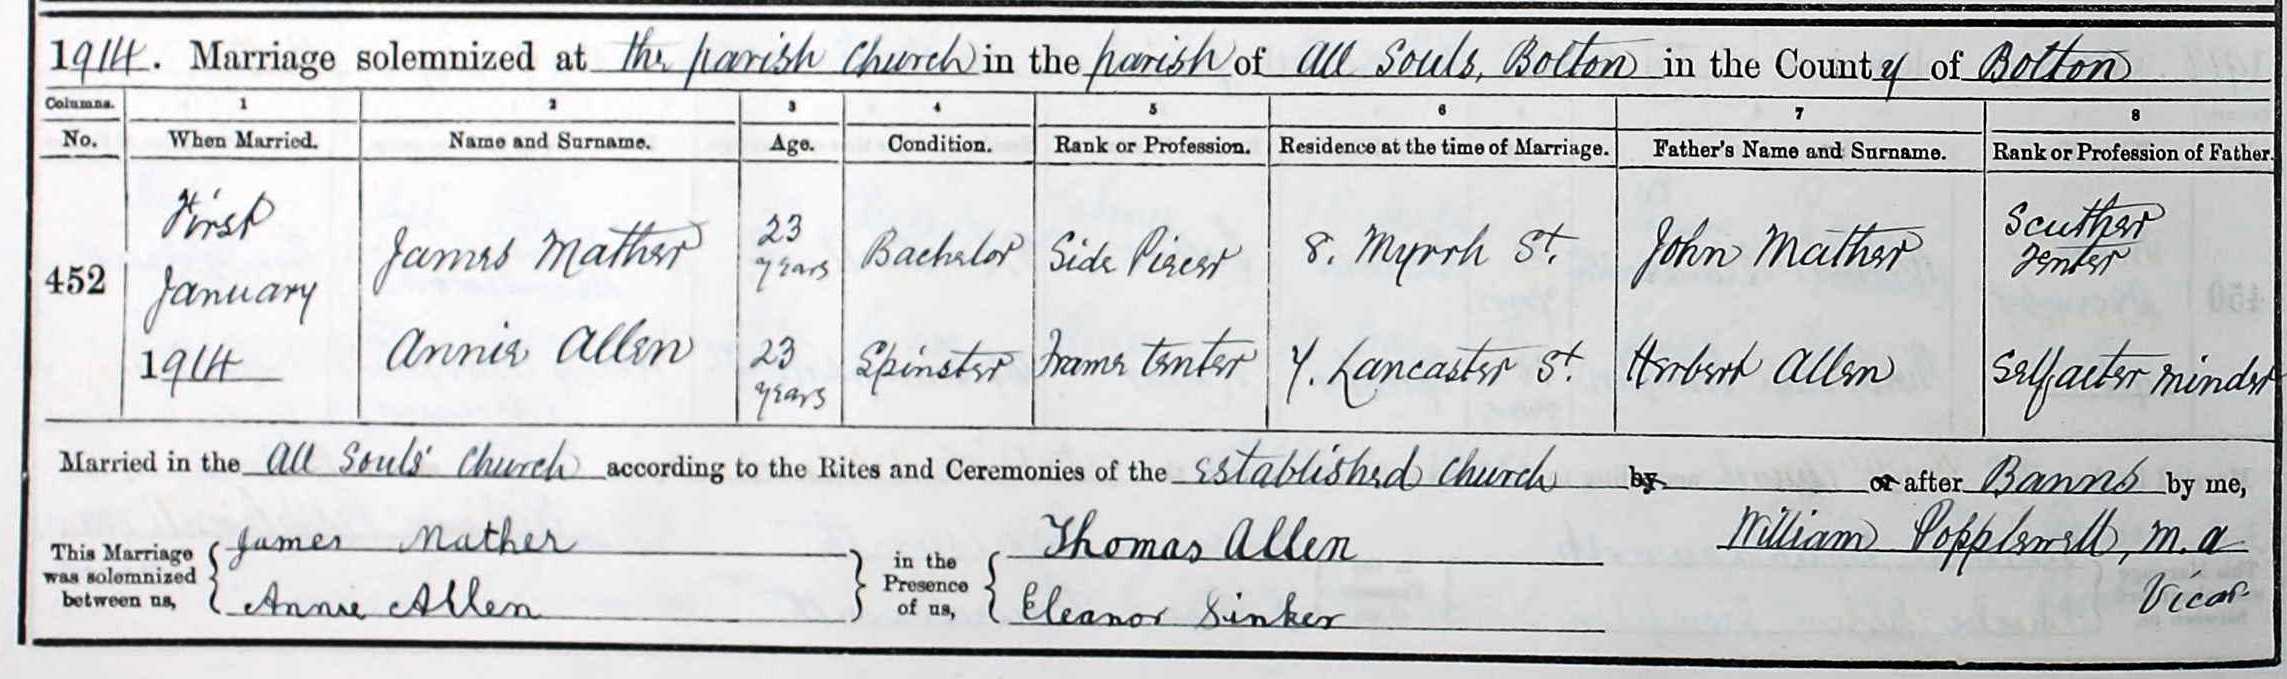 1914. Marriage solemnized at the parish Church in the parish of All Souls, Bolton in the County of Bolton
Columns. 1 2 3 4 5 6 7 8
No. When Married. Name and Surname. Age. Condition. Rank or Profession. Residence at the time of Marriage. Father's Name and Surname. Rank or Profession of Father.
452
First
January
1914
James Mather
23
years
Bachelor
Side Piecer
8. Myrrh St.
John Mather
Scutcher
Tenter
Annie Allen
23
years
Spinster
Frame Tenter
7. Lancaster St.
Herbert Allen
Selfacter minder
Married in the All Souls' Church according to the Rites and Ceremonies of the Established Church by or after Banns by me,
This Marriage
was solemnized
between us,
James Mather
Annie Allen
in the
Presence
of us,
Thomas Allen
Eleanor Sinker
William Popplewell, M.A
Vicar